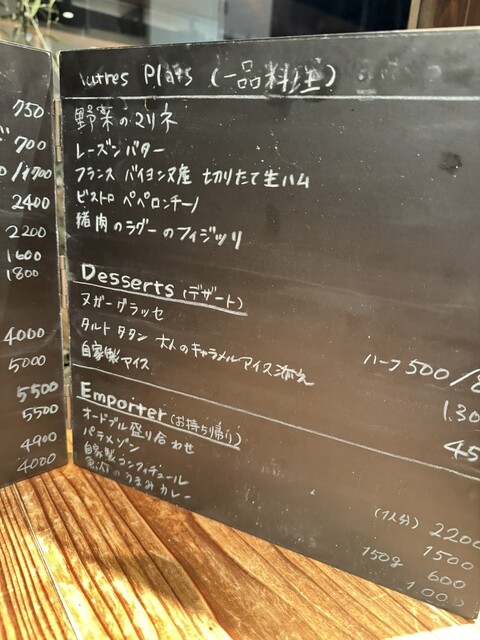 750
700
2400
2200
1600
1800
4000
5000
5500
5500
4900
4000
Autres Plats (一品料理)
野菜のマリネ
レーズンバター
フランス バイヨンヌ産 切りたて生ハム
ビストロ ペペロンチーノ
猪肉のラグーのフィジッリ
Desserts (デザート)
ヌガーグラッセ
タルトタタン 大人のキャラメルアイス添え ハーフ500/
自家製アイス 1.30
45
Emporter (お持ち帰り)
オードブル盛り合わせ (1人分) 2200
パテメゾン 1500
自家製コンフィチュール 150g 600
のうまみカレー 1000